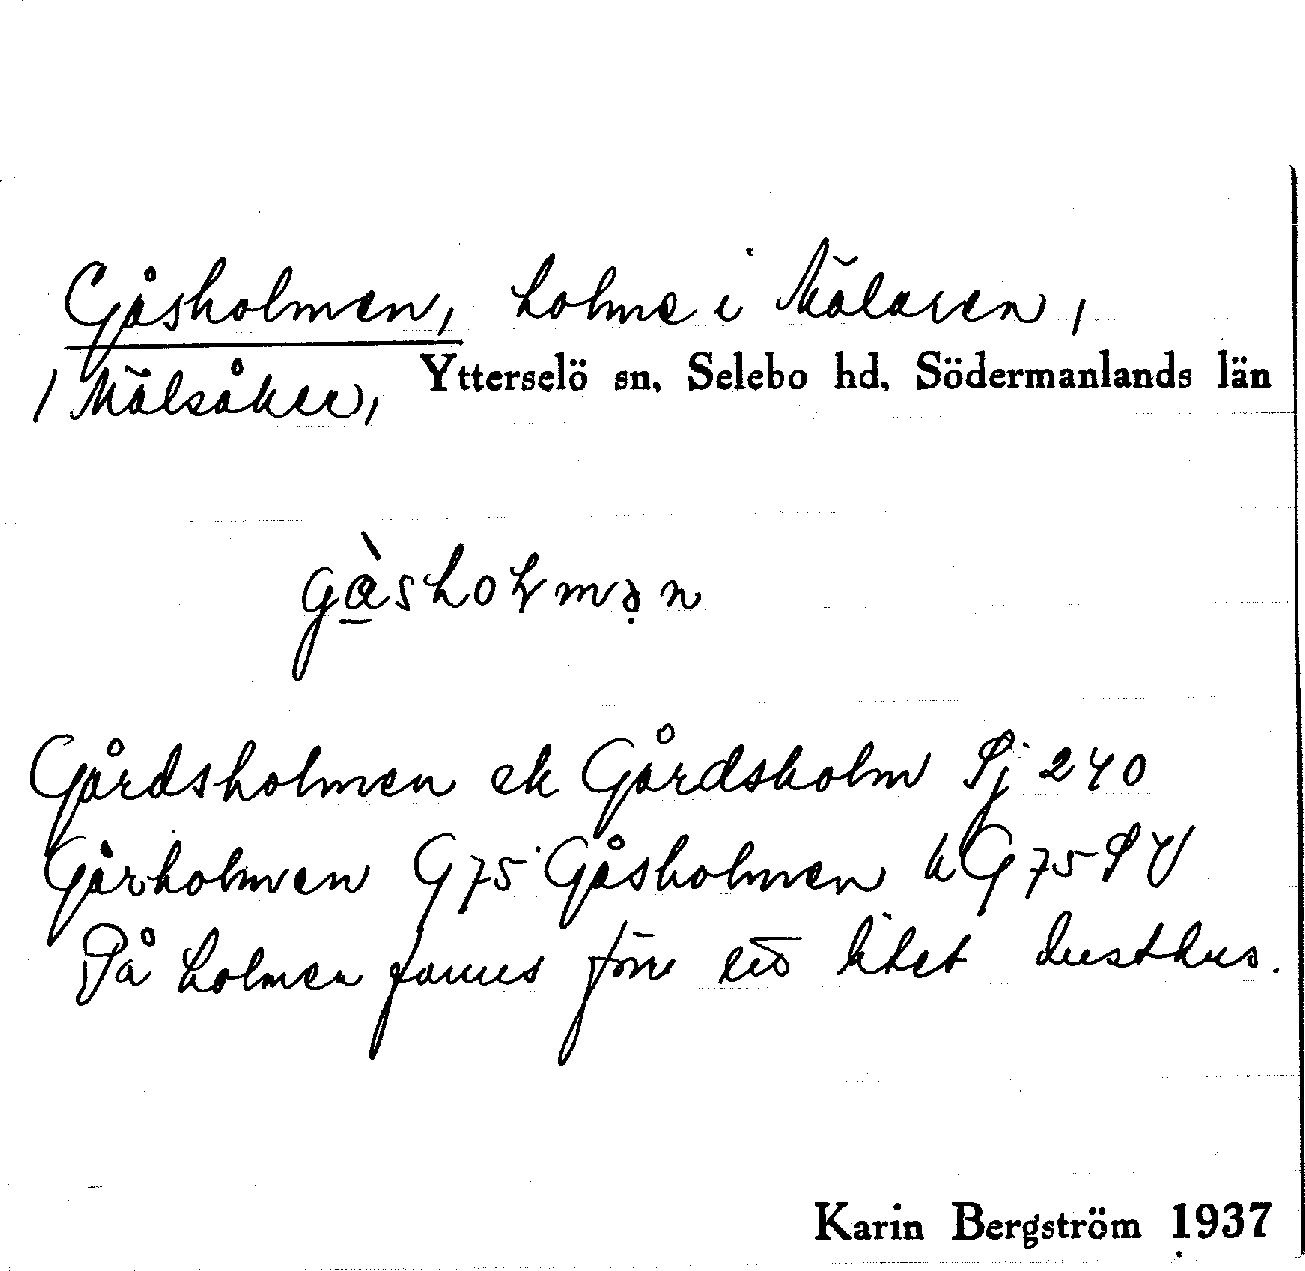 Gåsholmen, holme i Mälaren,
/ Mälsåker, Ytterselö sn, Selebo hd, Södermanlands län
gàshoɫmən
Gårdsholmen ek Gårdsholm Sj 240
Gårholmen G 75 Gåsholmen h G 75 SV
På holmen fanns förr litet lusthus.
Karin Bergström 1937